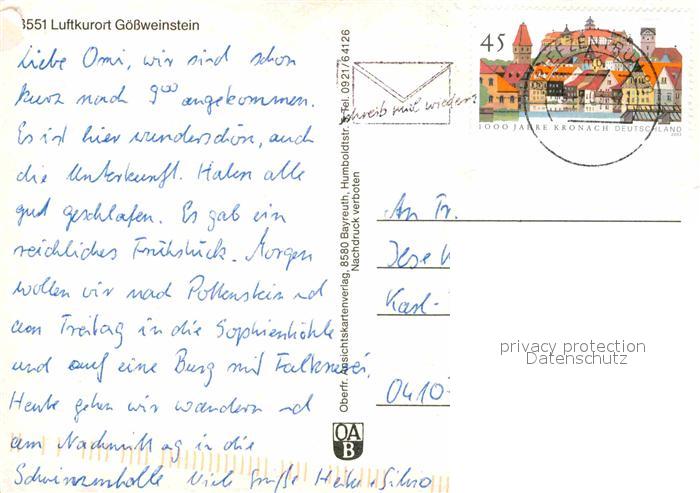 8551 Luftkurort Gößweinstein
Liebe Omi, wir sind schon
kurz nach 9⁰⁰ angekommen.
Es ist hier wunderschön, auch
die Unterkunft. Haben alle
gut geschlafen. Es gab ein
reichliches Frühstück. Morgen
wollen wir nach Pottenstein und
am Freitag in die Sophienhöhle
und auf eine Burg mit Falknerei.
Heute gehen wir wandern und
am Nachmittag in die
Schwimmhalle Viele Grüße Heike + Silvio
Oberfr. Ansichtskartenverlag, 8580 Bayreuth, Humboldtstr. Tel. 0921/64126
Nachdruck verboten
OA
B
schreib mal wieder
45
1000 JAHRE KRONACH DEUTSCHLAND
2003
An Fr.
Ilse
Karl-
0410
privacy protection
Datenschutz